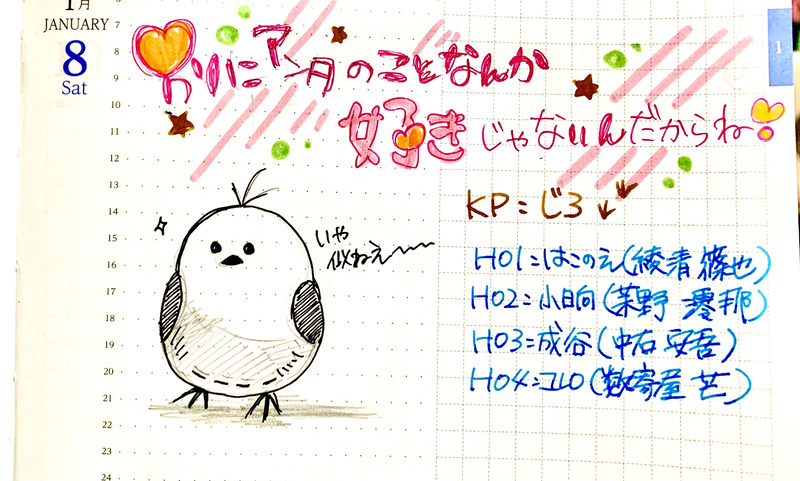 1月
JANUARY
8
Sat
1
7
8
9
10
11
12
13
14
15
16
17
18
19
20
21
22
23
24
別にアンタのことなんか
好きじゃないんだからね
KP=じろ
いや
似ねえ〜〜
HO1=はこのえ(綾清 篠也)
HO2=小日向(野 零那)
HO3=成谷(中右 安吾)
HO4=(数寄屋 芒)